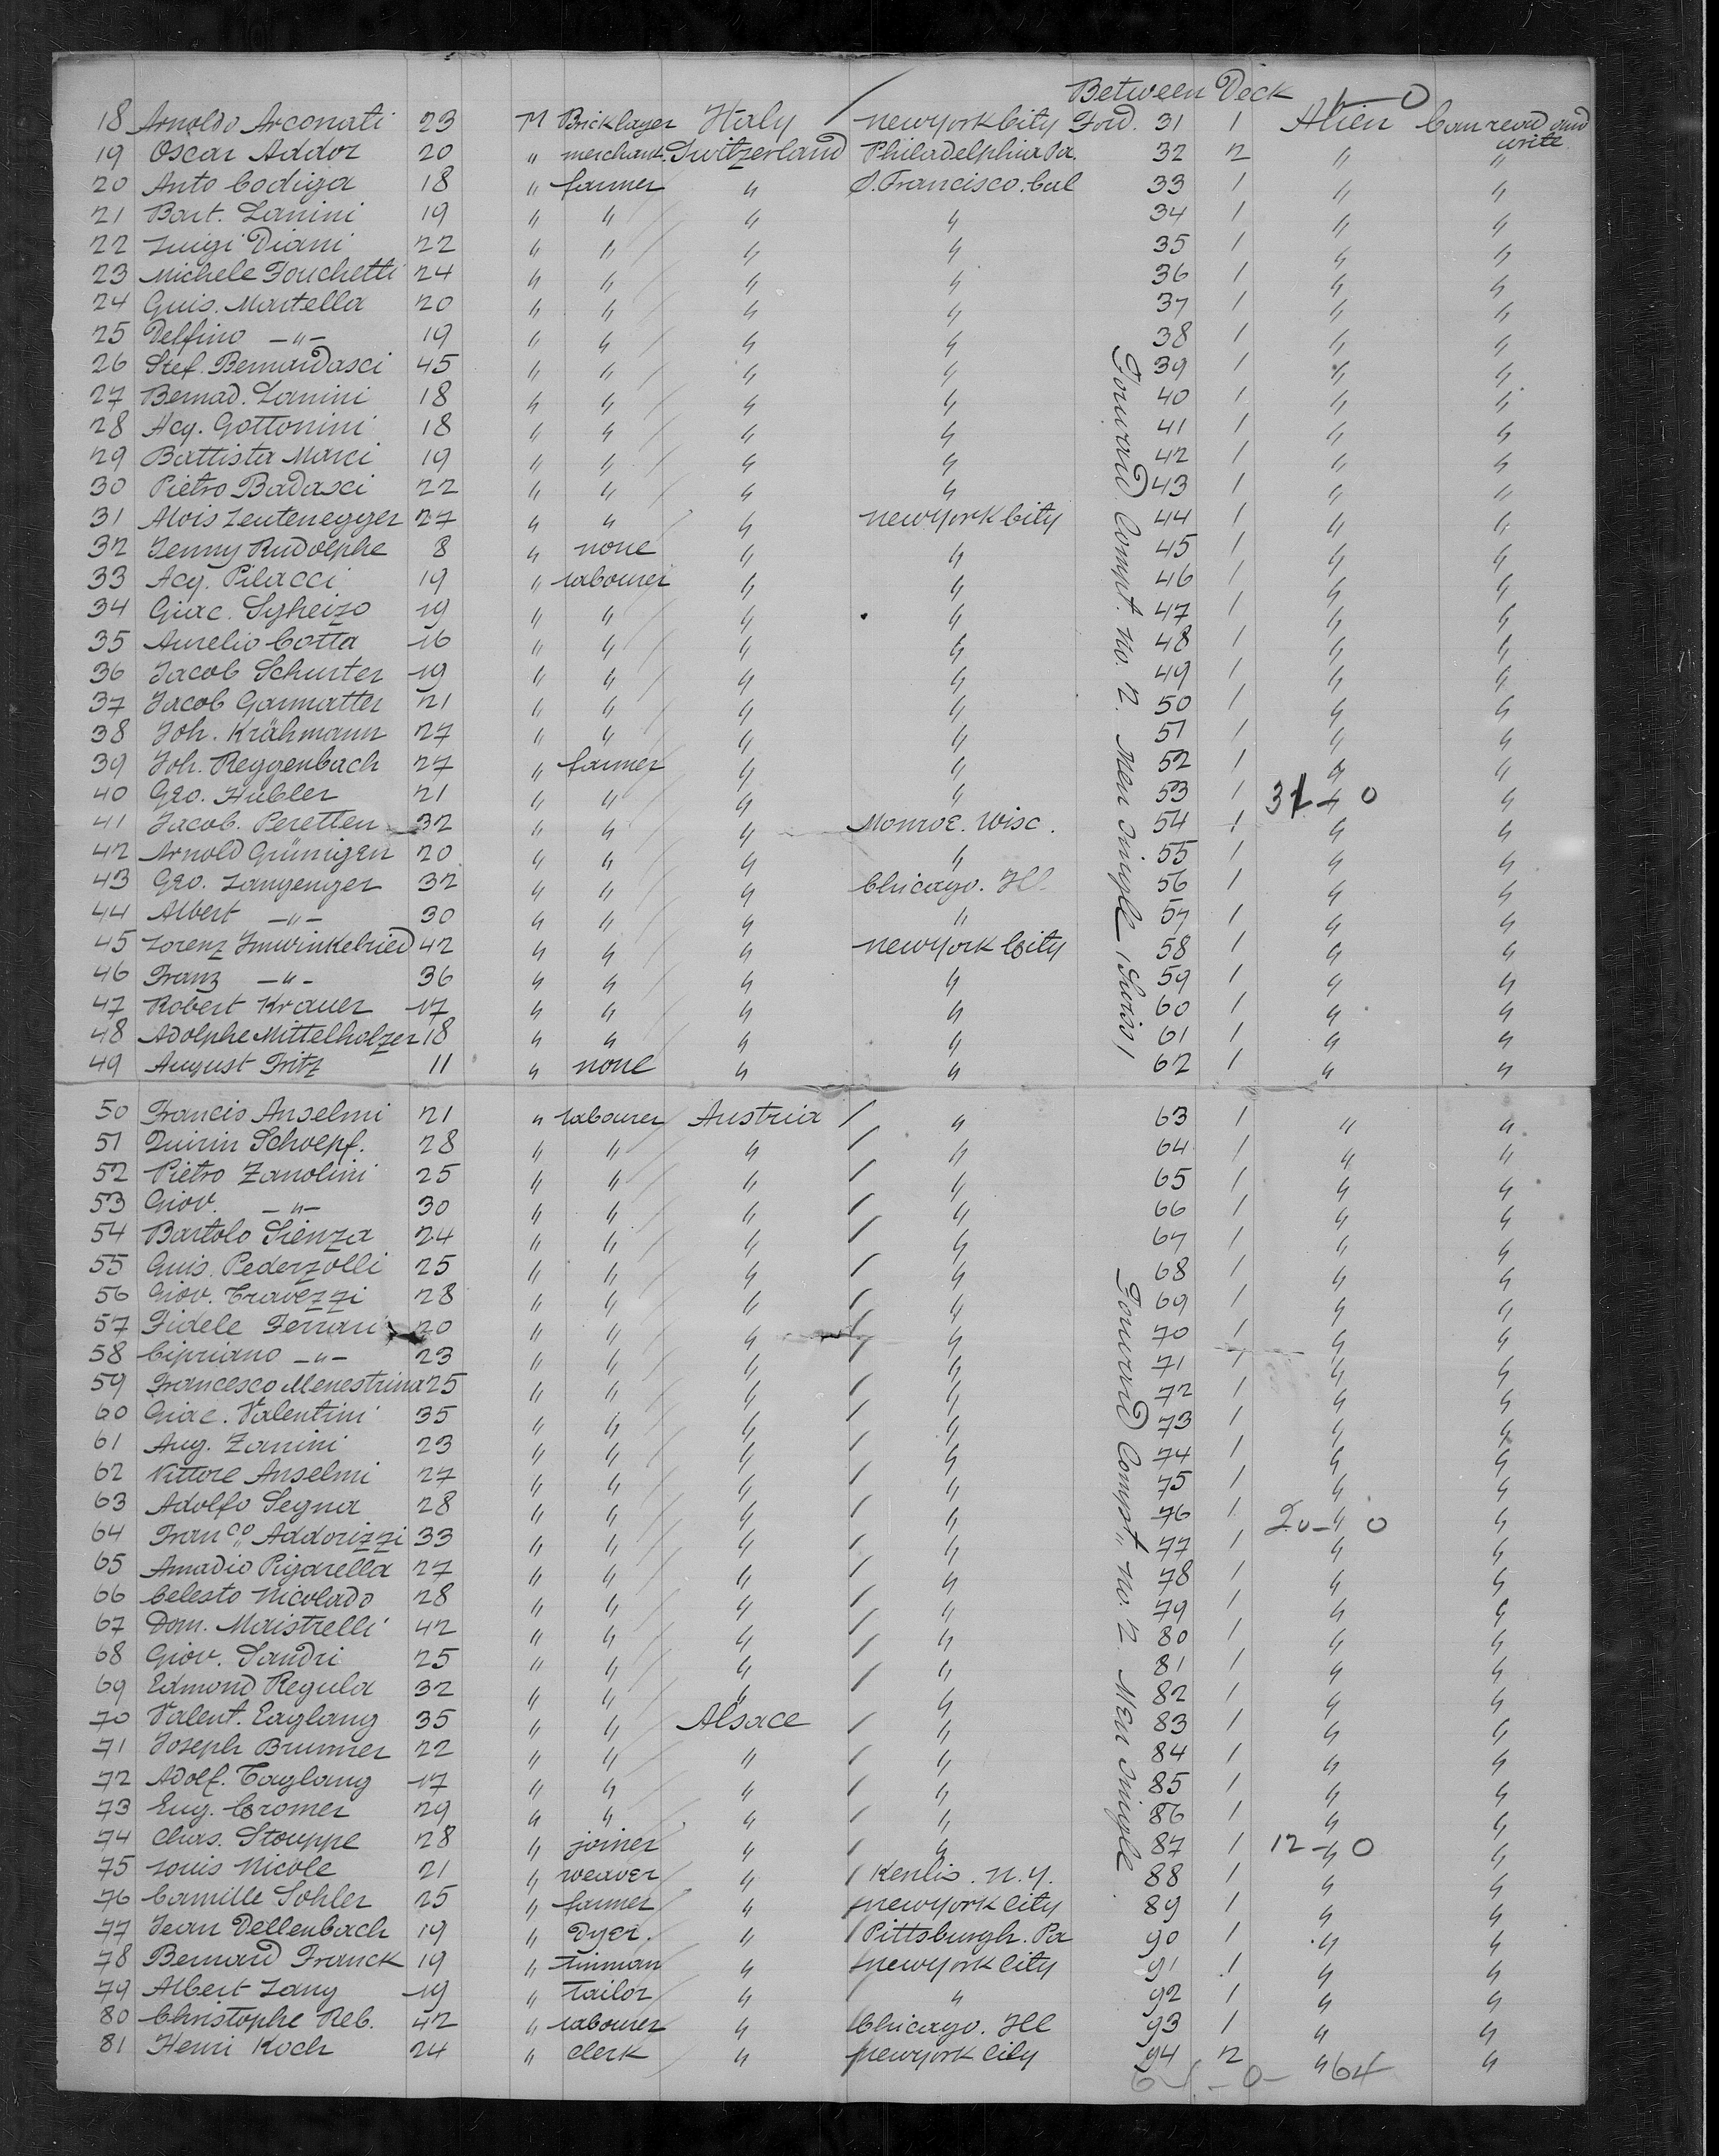 Between Deck
1 — 0
18 Arnoldo Arconati 23 M Bricklayer Italy / New York City Fwd. 31 1 Alien Can read and write
19 Oscar Addor 20 " merchant Switzerland Philadelphia Pa. 32 2 " "
20 Anto Codiga 18 " farmer " S. Francisco. Cal 33 1 " "
21 Bart. Lanini 19 " " " " 34 1 " "
22 Luigi Diani 22 " " " " 35 1 " "
23 Michele Fouchetti 24 " " " " 36 1 " "
24 Guis. Martella 20 " " " " 37 1 " "
25 Delfino —"— 19 " " " " 38 1 " "
26 Stef. Bernardasci 45 " " " " 39 1 " "
27 Bernad. Lanini 18 " " " " 40 1 " "
28 Acq. Gottonini 18 " " " " 41 1 " "
29 Battista Marci 19 " " " " 42 1 " "
30 Pietro Badasci 22 " " " " 43 1 " "
31 Alois Zentenegger 27 " " " New York City 44 1 " "
32 Jenny Rudolphe 8 " none " " 45 1 " "
33 Acq. Pilacci 19 " labourer " " 46 1 " "
34 Giac. Sgheizo 19 " " " " 47 1 " "
35 Aurelio Cotta 16 " " " " 48 1 " "
36 Jacob Schurter 19 " " " " 49 1 " "
37 Jacob Garmatter 21 " " " " 50 1 " "
38 Joh. Krähmann 27 " " " " 51 1 " "
39 Joh. Reggenbach 27 " farmer " " 52 1 " "
40 Geo. Hubler 21 " " " " 53 1 31 — 0 " "
41 Jacob. Peretten 32 " " " Monroe. Wisc. 54 1 " "
42 Arnold Grünigen 20 " " " " 55 1 " "
43 Geo. Zangenger 32 " " " Chicago. Ill. 56 1 " "
44 Albert —"— 30 " " " " 57 1 " "
45 Lorenz Imwinkelried 42 " " " New York City 58 1 " "
46 Franz —"— 36 " " " " 59 1 " "
47 Robert Krauer 17 " " " " 60 1 " "
48 Adolphe Mittelholzer 18 " " " " 61 1 " "
49 August Fritz 11 " none " " 62 1 " "
Forward Compt. No. 2. Men single (Swiss)
50 Francis Anselmi 21 " labourer Austria / " 63 1 " "
51 Quirin Schoepf. 28 " " " / " 64 1 " "
52 Pietro Zanolini 25 " " " / " 65 1 " "
53 Giov. —"— 30 " " " / " 66 1 " "
54 Bartolo Sienza 24 " " " / " 67 1 " "
55 Guis. Pederzolli 25 " " " / " 68 1 " "
56 Giov. Travezzi 28 " " " / " 69 1 " "
57 Fidele Ferrari 20 " " " / " 70 1 " "
58 Cipriano —"— 23 " " " / " 71 1 " "
59 Francesco Menestrina 25 " " " / " 72 1 " "
60 Giac. Valentini 35 " " " / " 73 1 " "
61 Aug. Zanini 23 " " " / " 74 1 " "
62 Vittore Anselmi 27 " " " / " 75 1 " "
63 Adolfo Segna 28 " " " / " 76 1 20 — 0 " "
64 Franco Addorizzi 33 " " " / " 77 1 " "
65 Amadio Pigarella 27 " " " / " 78 1 " "
66 Celesto Nicolado 28 " " " / " 79 1 " "
67 Dom. Maistrelli 42 " " " / " 80 1 " "
68 Giov. Sandri 25 " " " / " 81 1 " "
69 Edmond Regula 32 " " " / " 82 1 " "
70 Valent. Taglang 35 " " Alsace / " 83 1 " "
71 Joseph Brunner 22 " " " / " 84 1 " "
72 Adolf. Taglang 17 " " " / " 85 1 " "
73 Eug. Cromer 29 " " " / " 86 1 " "
74 Chas. Stouppe 28 " joiner " / " 87 1 12 — 0 " "
75 Louis Nicole 21 " weaver " / Kenlis. N.Y. 88 1 " "
76 Camille Sohler 25 " farmer " / New York City 89 1 " "
77 Jean Dellenbach 19 " Dyer. " / Pittsburgh. Pa 90 1 " "
78 Bernard Franck 19 " tinman " / New York City 91 1 " "
79 Albert Lang 19 " Tailor " / " 92 1 " "
80 Christophe Reb. 42 " labourer " / Chicago. Ill 93 1 " "
81 Henri Koch 24 " clerk " / New York City 94 2 " "
Forward Compt. No. 2. Men single
64 — 0 — 64